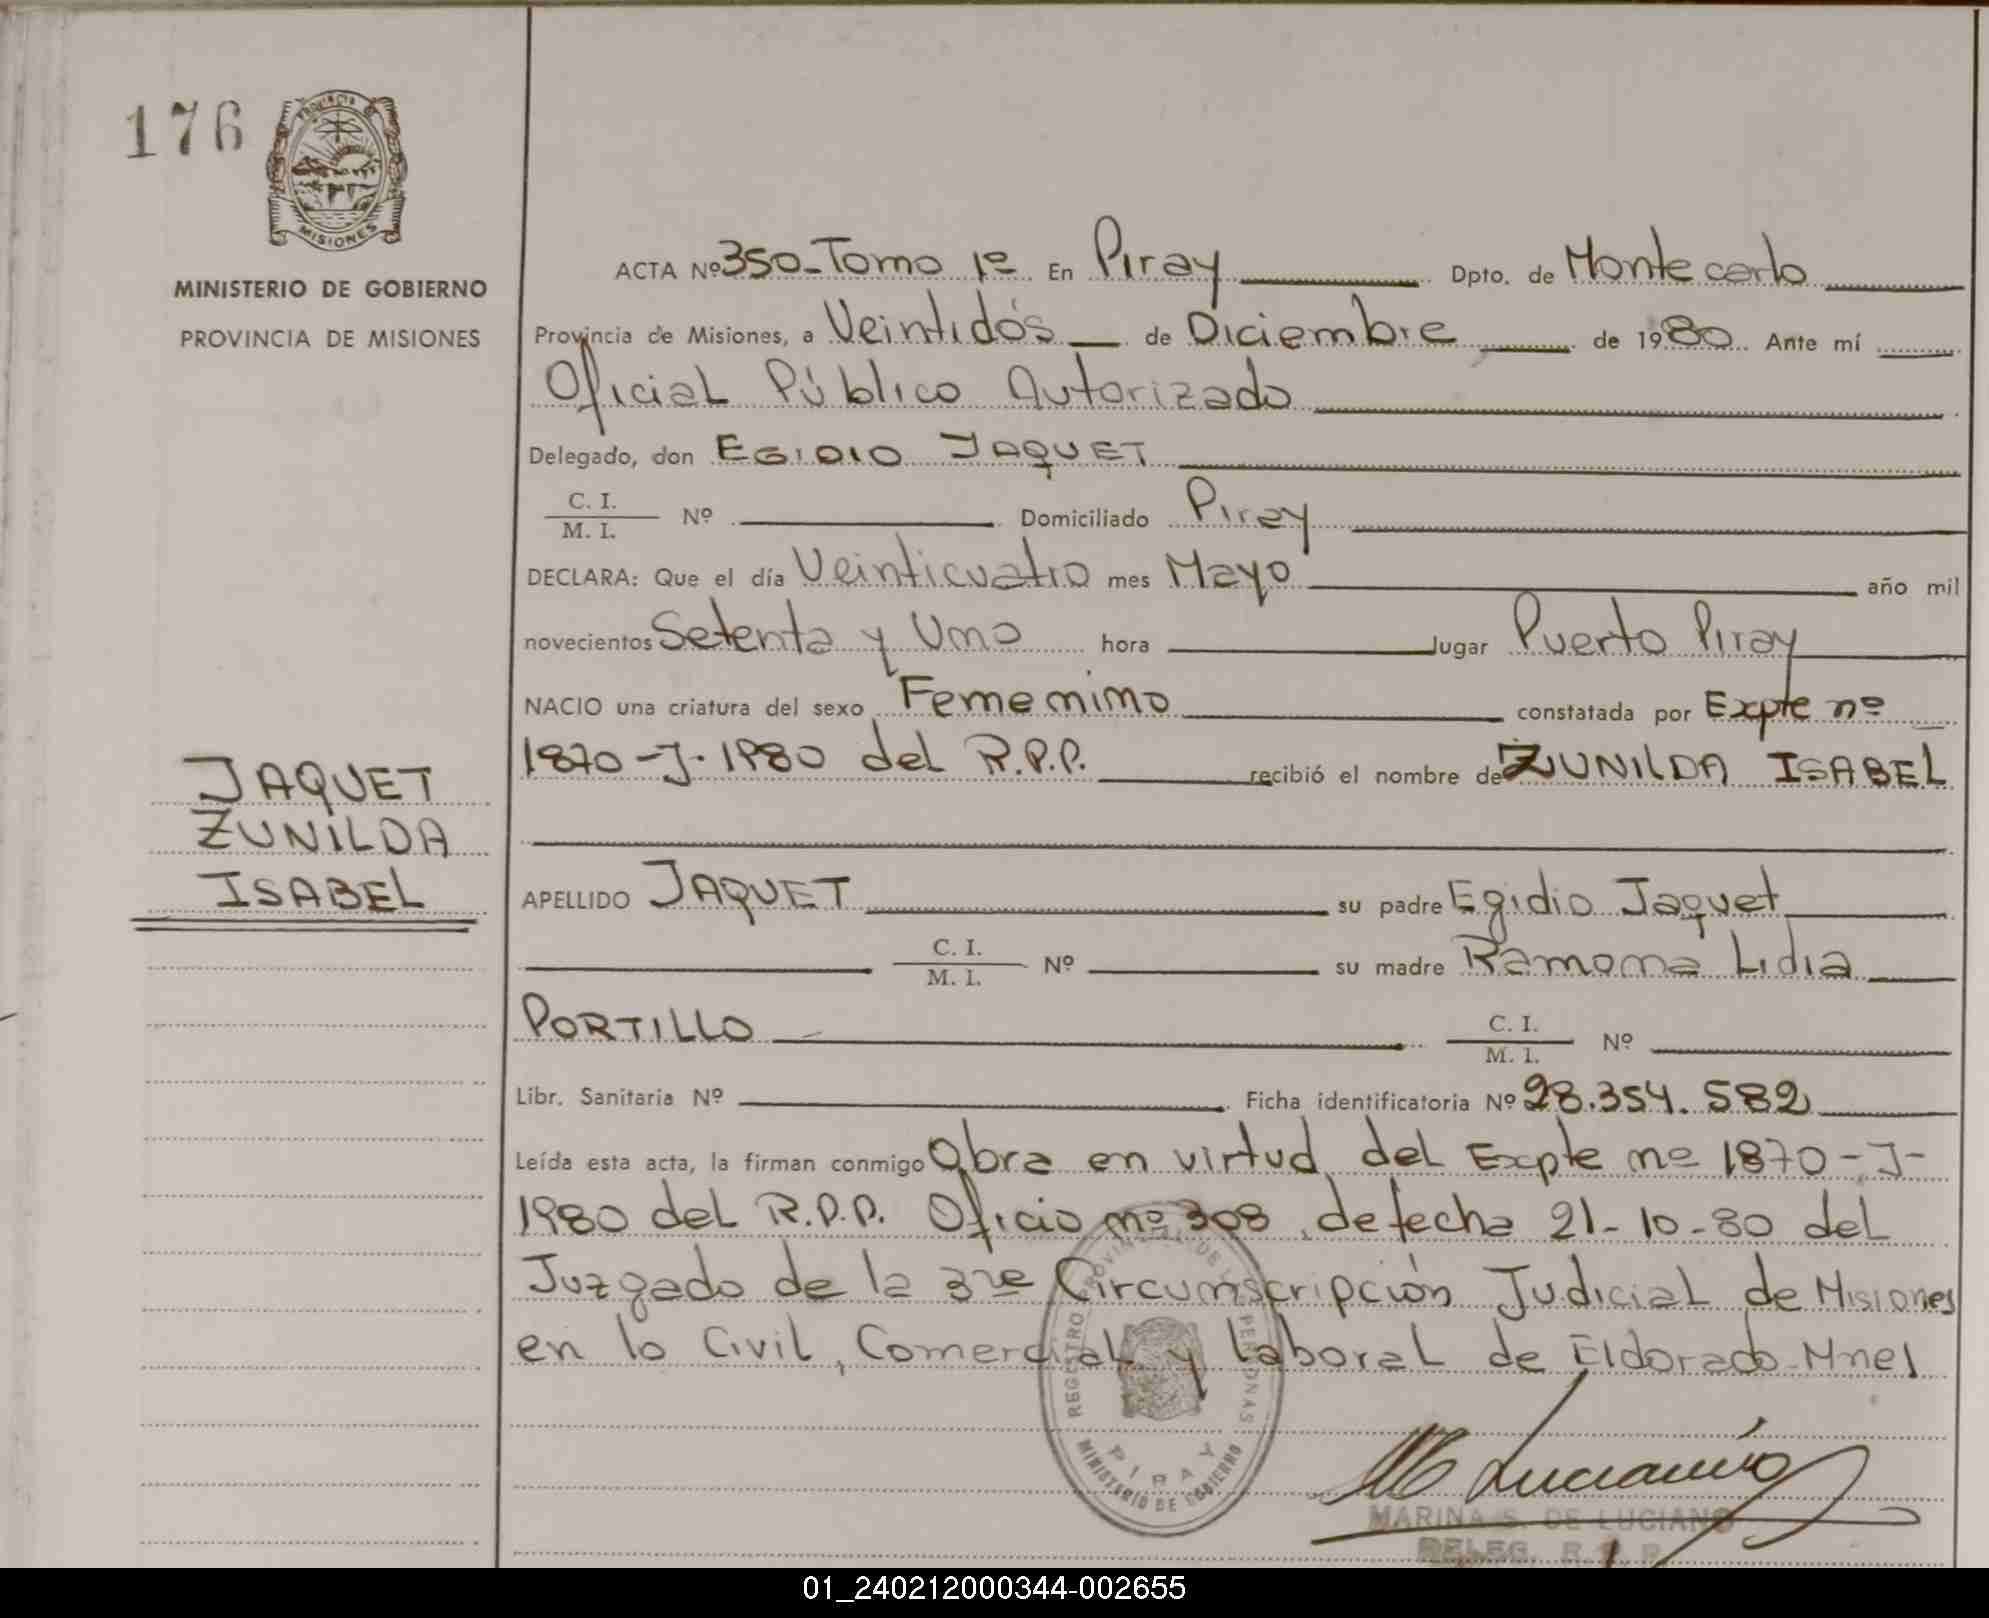 176
PROVINCIA DE
MISIONES
MINISTERIO DE GOBIERNO
PROVINCIA DE MISIONES
JAQUET
ZUNILDA
ISABEL
ACTA Nº 350-Tomo 1º En Piray Dpto. de Montecarlo
Provincia de Misiones, a Veintidós de Diciembre de 1980 Ante mí
Oficial Público Autorizado
Delegado, don EGIDIO JAQUET
C. I.
M. I. Nº Domiciliado Piray
DECLARA: Que el día Veinticuatro mes Mayo año mil
novecientos Setenta y Uno hora lugar Puerto Piray
NACIO una criatura del sexo Femenino constatada por Expte nº
1870-J-1980 del R.P.P. recibió el nombre de ZUNILDA ISABEL
APELLIDO JAQUET su padre Egidio Jaquet
C. I.
M. I. Nº su madre Ramona Lidia
PORTILLO C. I.
M. I. Nº
Libr. Sanitaria Nº Ficha identificatoria Nº 28.354.582
Leída esta acta, la firman conmigo Obra en virtud del Expte nº 1870-J-
1980 del R.P.P. Oficio nº 308, de fecha 21-10-80 del
Juzgado de la 3re Circunscripción Judicial de Misiones
en lo Civil, Comercial y Laboral de Eldorado-Mnes
REGISTRO PROVINCIAL DE LAS PERSONAS
PIRAY
MINISTERIO DE GOBIERNO
M Luciano
MARINA S. DE LUCIANO
DELEG. R. P. P.
01_240212000344-002655